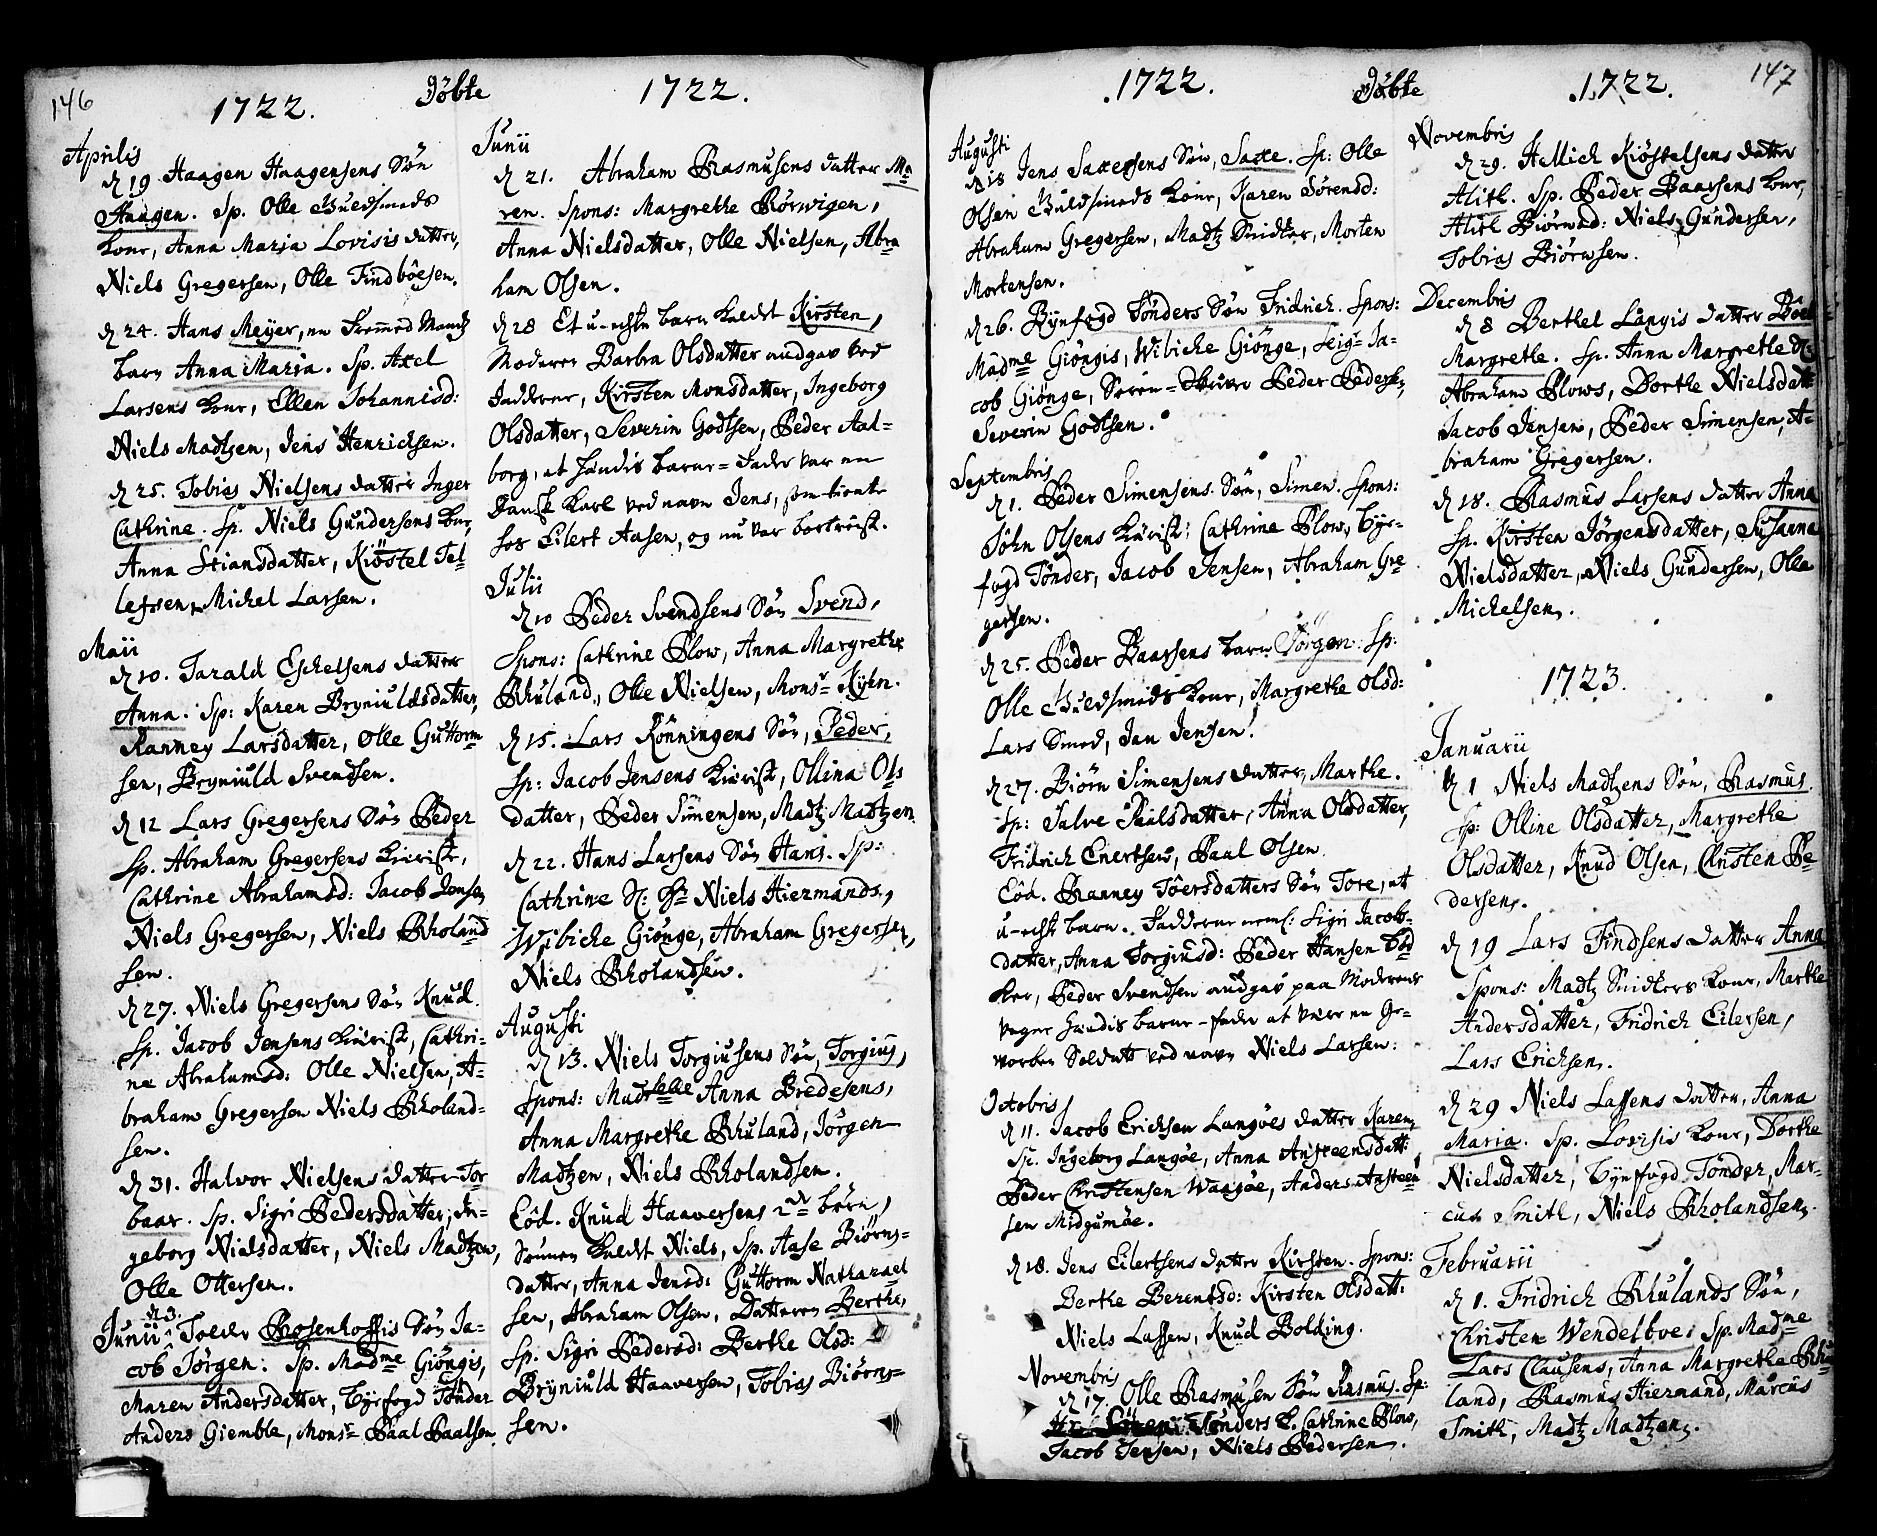 146
1722. Döbte 1722.
Aprilis
d 19 Haagen Haagensens Sön
Haagen. Sp. Olle Guldsmeds
Kone, Anna Maria Lovisis datter,
Niels Gregersen, Olle Findböesen.
d 24. Hans Meÿer, en Fremed Mands
barn Anna Maria. Sp. Axel
Larsens Kone, Ellen Johannisd:
Niels Madtzen, Jens Henrichsen.
d 25. Tobias Nielsens datter Inger
Cathrine. Sp. Niels Gundersens Kone,
Anna Stiansdatter, Kiöstel Tel-
lefsen, Michel Larsen.
Maii
d 10. Tarald Eschelsens datter
Anna. Sp: Karen Bryniuldsdatter,
Ranney Larsdatter, Olle Guttorm
sen, Bryniuld Svendsen.
d 12 Lars Gregersens Sön Peder
Sp. Abraham Gregersens Kiærist,
Cathrine Abrahamsd: Jacob Jensen
Niels Gregersen, Niels Rholand
sen.
d 27. Niels Gregersens Sön Knud.
Sp. Jacob Jensens Kiærist, Cathri-
ne Abrahamsd: Olle Nielsen, A-
braham Gregersen Niels Rholand-
sen.
d 31. Halvor Nielsens datter Tor
baar. Sp. Sigri Pedersdatter, In-
geborg Nielsdatter, Niels Madtzen,
Olle Ottersen.
d 3.
Junii Tolder Rosenhoffis Sön Ja-
cob Jörgen. Sp. Madme Giöngis,
Maren Andersdatter, Byefogd Tönder
Anders Giemble, Monsr Paal Paalsen
Junii
d 21. Abraham Rasmusens datter Ma
ren. Spons: Margrethe Rörvigen,
Anna Nielsdatter, Olle Nielsen, Abra
ham Olsen.
d 28 Et u-echte barn kaldet Kirsten,
Moderen Barbra Olsdatter udgav ved
Fadderne, Kirsten Monsdatter, Ingeborg
Olsdatter, Severin Godtsen, Peder Aal-
borg, at hendis barne-Fader var en
Dansk Karl ved navn Jens, som tiente
hos Eilert Aasen, og nu var bortreist.
Julii
d 10 Peder Svendsens Sön Svend,
Spons: Cathrine Plow, Anna Margrethe
Rhuland, Olle Nielsen, Monsr Kÿhn.
d 15. Lars Rönningens Sön, Peder,
Sp: Jacob Jensens Kiærist, Ollina Ols
datter, Peder Simensen, Madtz Madtzen
d 22. Hans Larsens Sön Hans. Sp:
Cathrine Sl: Hr Niels Hiermands,
Wibicke Giönge, Abraham Gregersen,
Niels Rholandsen.
Augusti
d 13. Niels Torgiusens Sön, Torgius,
Spons: Madselle Anna Bredesens,
Anna Margrethe Rhuland, Jörgen
Madtzen, Niels Rholandsen.
Eôd. Knud Haaversens 2de börn,
Sönnen kaldet Niels, Sp. Aase Biörns-
datter, Anna Jensd: Guttorm Nathanael
sen, Abraham Olsen, Datteren Berthe,
Sp. Sigri Pedersd: Berthe Olsd:
Bryniuld Haaversen, Tobias Biörns-
sen.
147
1722. Döbte 1722.
Augusti
d 18 Jens Saxesens Sön, Saxe. Sp: Olle
Olsen Guldsmeds Kone, Karen Sörensd:
Abraham Gregersen, Madtz Snidker, Morten
Mortensen.
d 26. Byefogd Tönders Sön Fridrich. Spons:
Madme Giöngis, Wibicke Giönge, Seigr Ja-
cob Giönge, Peder Pedersen,
Severin Godtsen.
Septembris
d 1. Peder Simensens Sön, Simen. Spons:
John Olsens Kiærist: Cathrine Plow, Bye-
fogd Tönder, Jacob Jensen, Abraham Gre
gersen.
d 25. Peder Baarsens barn Jörgen. Sp:
Olle Guldsmeds Kone, Margrethe Olsd:
Lars Smed, Jan Jensen.
d 27. Biörn Simensens datter, Marthe.
Sp: Salve Pailsdatter, Anna Olsdatter,
Fridrich Enertsen, Paal Olsen.
Eôd. Ranney Töersdatters Sön Tore, et
u-echt barn. Fadderne neml: Sigri Jacobs-
datter, Anna Torgiusd: Peder Hansen Böd
ker, Peder Svendsen udgav paa Moderens
vegne hendis barne-fader at være en Ge-
vorben Soldatt ved navn Niels Larsen.
Octobris
d 11. Jacob Erichsen Langöes datter Karen,
Sp. Ingeborg Langöe, Anna Ansteensdatt:
Peder Christensen Waagöe, Anders Ansteen
sen Midgumöe.
d 18. Jens Eilertsens datter Kirsten. Spons:
Berthe Berentsd: Kirsten Olsdatt:
Niels Lassen, Knud Bolding.
Novembris
d 17. Olle Rasmusen Sön Rasmus. Sp:
Tönders K. Cathrine Plow,
Jacob Jensen, Niels Pedersen.
Novembris
d 29. Hellich Kiöstelsens datter
Alith. Sp. Peder Baarsens Kone,
Alith Biörnsd: Niels Gundersen,
Tobias Biörnsen.
Decembris
d 8 Berthel Langis datter Böel
Margrethe. Sp. Anna Margrethe Sl:
Abraham Plows, Dorthe Nielsdatt
Jacob Jensen, Peder Simensen, A-
braham Gregersen.
d 18. Rasmus Larsens datter Anna
Sp. Kirsten Jörgensdatter, Susanna
Nielsdatter, Niels Gundersen, Olle
Michelsen.
1723.
Januarii
d 1 Niels Madtzens Sön, Rasmus.
Sp: Olline Olsdatter, Margrethe
Olsdatter, Knud Olsen, Christen Pe-
dersen.
d 19 Lars Findsens datter Anna
Spons: Madtz Snidkers Kone, Marthe
Andersdatter, Fridrich Eilersen,
Lars Erichsen.
d 29 Niels Lassens datter, Anna
Maria. Sp. Lovisis Kone, Dorthe
Nielsdatter, Byefogd Tönder, Mar-
cus Smith, Niels Rholandsen.
Februarii
d 1. Fridrich Rhulands Sön,
Christen Wendelboe. Sp. Madme
Lars Clausens, Anna Margrethe Rhu
land, Rasmus Hiermand, Marcus
Smith, Madtz Madtzen.